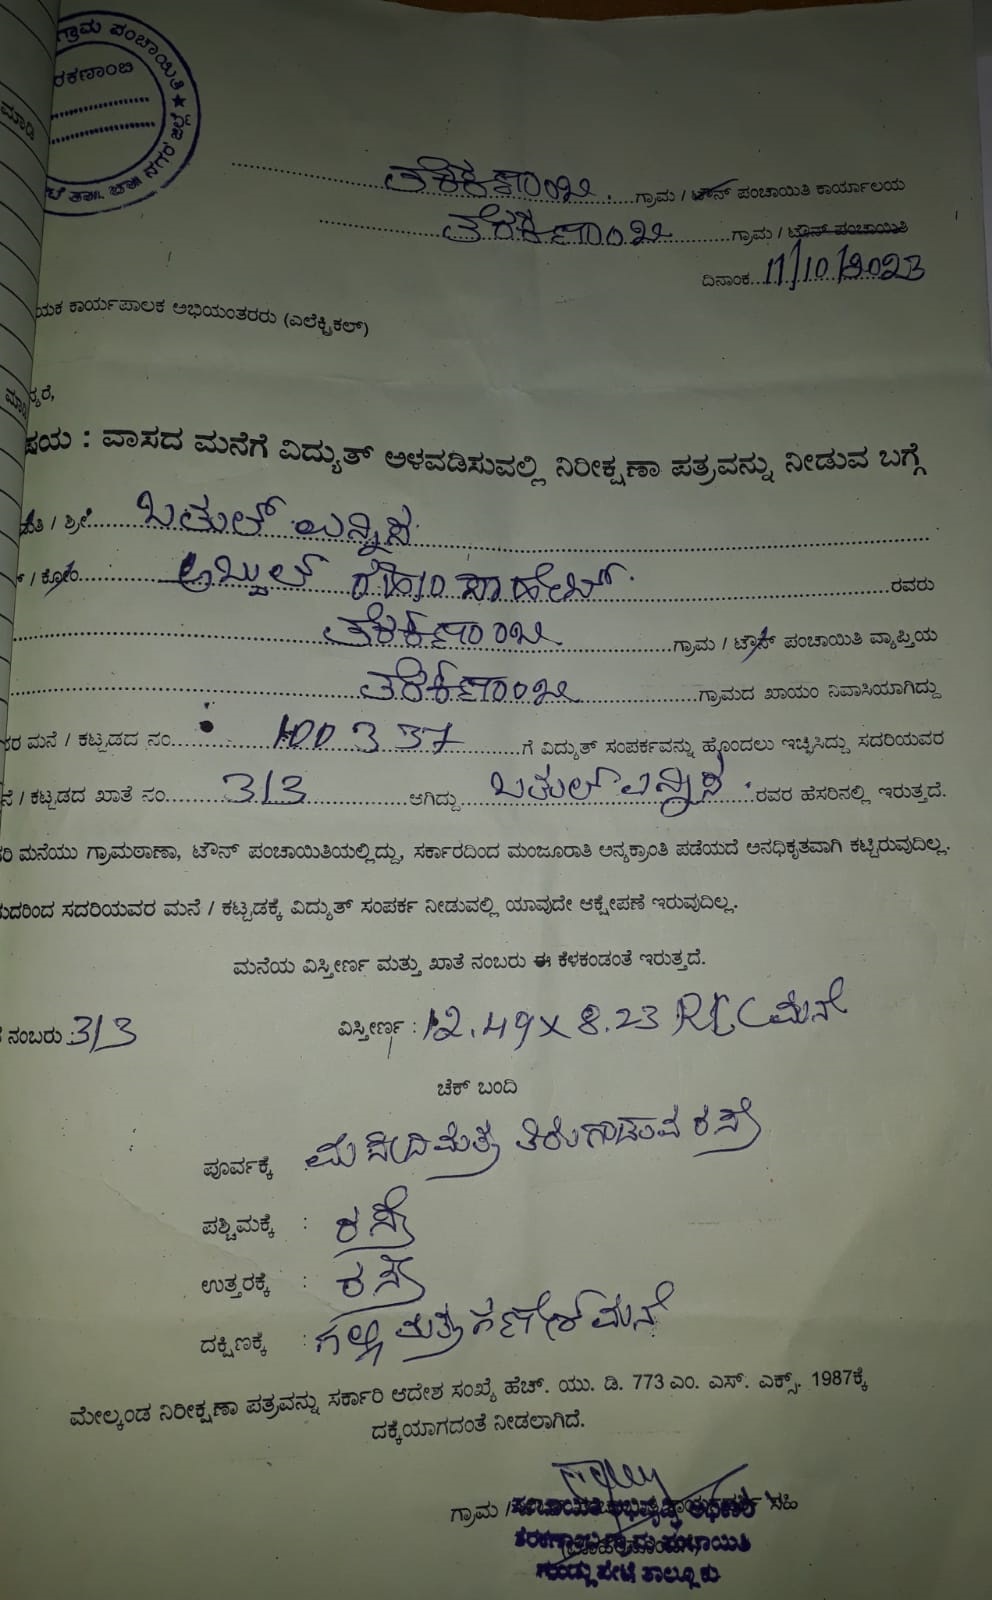 ಗ್ರಾಮ ಪಂಚಾಯಿತಿ ★
ರಕಣಾಂಬಿ
ತಾ॥. ಚಾ॥ ನಗರ ಜಿಲ್ಲೆ
ಮಾಡಿ
ತೆರಕಣಾಂಬಿ ಗ್ರಾಮ / ಟೌನ್ ಪಂಚಾಯಿತಿ ಕಾರ್ಯಾಲಯ
ತೆರಕಣಾಂಬಿ ಗ್ರಾಮ / ಟೌನ್ ಪಂಚಾಯಿತಿ
ದಿನಾಂಕ 11/10/2023
ಯಕ ಕಾರ್ಯಪಾಲಕ ಅಭಿಯಂತರರು (ಎಲೆಕ್ಟ್ರಿಕಲ್)
ಮಾಡಿ
ನ್ಯರೆ,
ಷಯ : ವಾಸದ ಮನೆಗೆ ವಿದ್ಯುತ್ ಅಳವಡಿಸುವಲ್ಲಿ ನಿರೀಕ್ಷಣಾ ಪತ್ರವನ್ನು ನೀಡುವ ಬಗ್ಗೆ
ಮತಿ / ಶ್ರೀ ಬತುಲ್ ಉನ್ನಿಸ
/ ಕೋಂ ಅಬ್ದುಲ್ ರಹೀಂ ಸಾಹೇಬ್ ರವರು
ತೆರಕಣಾಂಬಿ ಗ್ರಾಮ / ಟೌನ್ ಪಂಚಾಯಿತಿ ವ್ಯಾಪ್ತಿಯ
ತೆರಕಣಾಂಬಿ ಗ್ರಾಮದ ಖಾಯಂ ನಿವಾಸಿಯಾಗಿದ್ದು
ರರ ಮನೆ / ಕಟ್ಟಡದ ನಂ 100337 ಗೆ ವಿದ್ಯುತ್ ಸಂಪರ್ಕವನ್ನು ಹೊಂದಲು ಇಚ್ಛಿಸಿದ್ದು ಸದರಿಯವರ
ನೆ / ಕಟ್ಟಡದ ಖಾತೆ ನಂ 313 ಆಗಿದ್ದು ಬತುಲ್ ಉನ್ನಿಸ ರವರ ಹೆಸರಿನಲ್ಲಿ ಇರುತ್ತದೆ.
ರಿ ಮನೆಯು ಗ್ರಾಮಠಾಣಾ, ಟೌನ್ ಪಂಚಾಯಿತಿಯಲ್ಲಿದ್ದು, ಸರ್ಕಾರದಿಂದ ಮಂಜೂರಾತಿ ಅನ್ಯಕ್ರಾಂತಿ ಪಡೆಯದೆ ಅನಧಿಕೃತವಾಗಿ ಕಟ್ಟಿರುವುದಿಲ್ಲ.
ುದರಿಂದ ಸದರಿಯವರ ಮನೆ / ಕಟ್ಟಡಕ್ಕೆ ವಿದ್ಯುತ್ ಸಂಪರ್ಕ ನೀಡುವಲ್ಲಿ ಯಾವುದೇ ಆಕ್ಷೇಪಣೆ ಇರುವುದಿಲ್ಲ.
ಮನೆಯ ವಿಸ್ತೀರ್ಣ ಮತ್ತು ಖಾತೆ ನಂಬರು ಈ ಕೆಳಕಂಡಂತೆ ಇರುತ್ತದೆ.
ನಂಬರು : 313 ವಿಸ್ತೀರ್ಣ : 12.49 x 8.23 RCC ಮನೆ
ಚೆಕ್ ಬಂದಿ
ಪೂರ್ವಕ್ಕೆ ಮಸೀದಿ ಮತ್ತು ತಿರುಗಾಡುವ ರಸ್ತೆ
ಪಶ್ಚಿಮಕ್ಕೆ : ರಸ್ತೆ
ಉತ್ತರಕ್ಕೆ : ರಸ್ತೆ
ದಕ್ಷಿಣಕ್ಕೆ : ಗಲ್ಲಿ ಮತ್ತು ಗಣೇಶ್ ಮನೆ
ಮೇಲ್ಕಂಡ ನಿರೀಕ್ಷಣಾ ಪತ್ರವನ್ನು ಸರ್ಕಾರಿ ಆದೇಶ ಸಂಖ್ಯೆ ಹೆಚ್. ಯು. ಡಿ. 773 ಎಂ. ಎಸ್. ಎಕ್ಸ್. 1987ಕ್ಕೆ
ದಕ್ಕೆಯಾಗದಂತೆ ನೀಡಲಾಗಿದೆ.
ಗ್ರಾಮ / ಸಹಿ
ಪಂಚಾಯಿತಿ ಅಭಿವೃದ್ಧಿ ಅಧಿಕಾರಿ
ತೆರಕಣಾಂಬಿ ಗ್ರಾಮ ಪಂಚಾಯಿತಿ
ಗುಂಡ್ಲುಪೇಟೆ ತಾಲ್ಲೂಕು